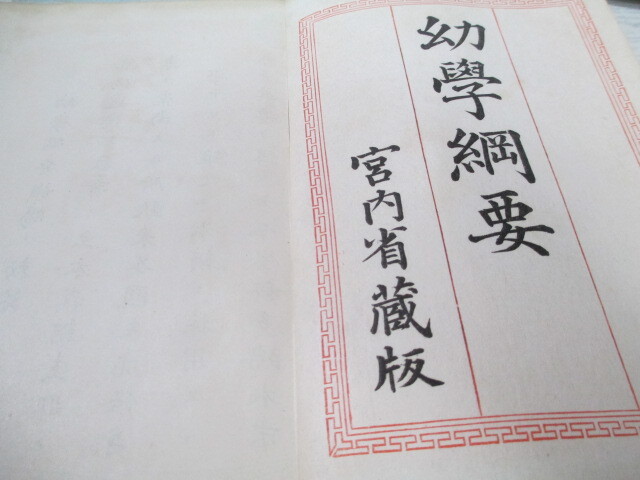 幼學綱要
宮内省藏版